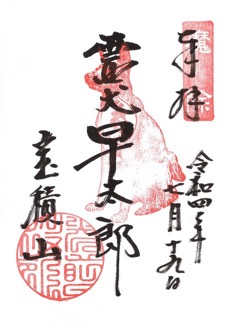 魔除
奉拝
令和四年
七月十九日
霊犬早太郎
宝積山